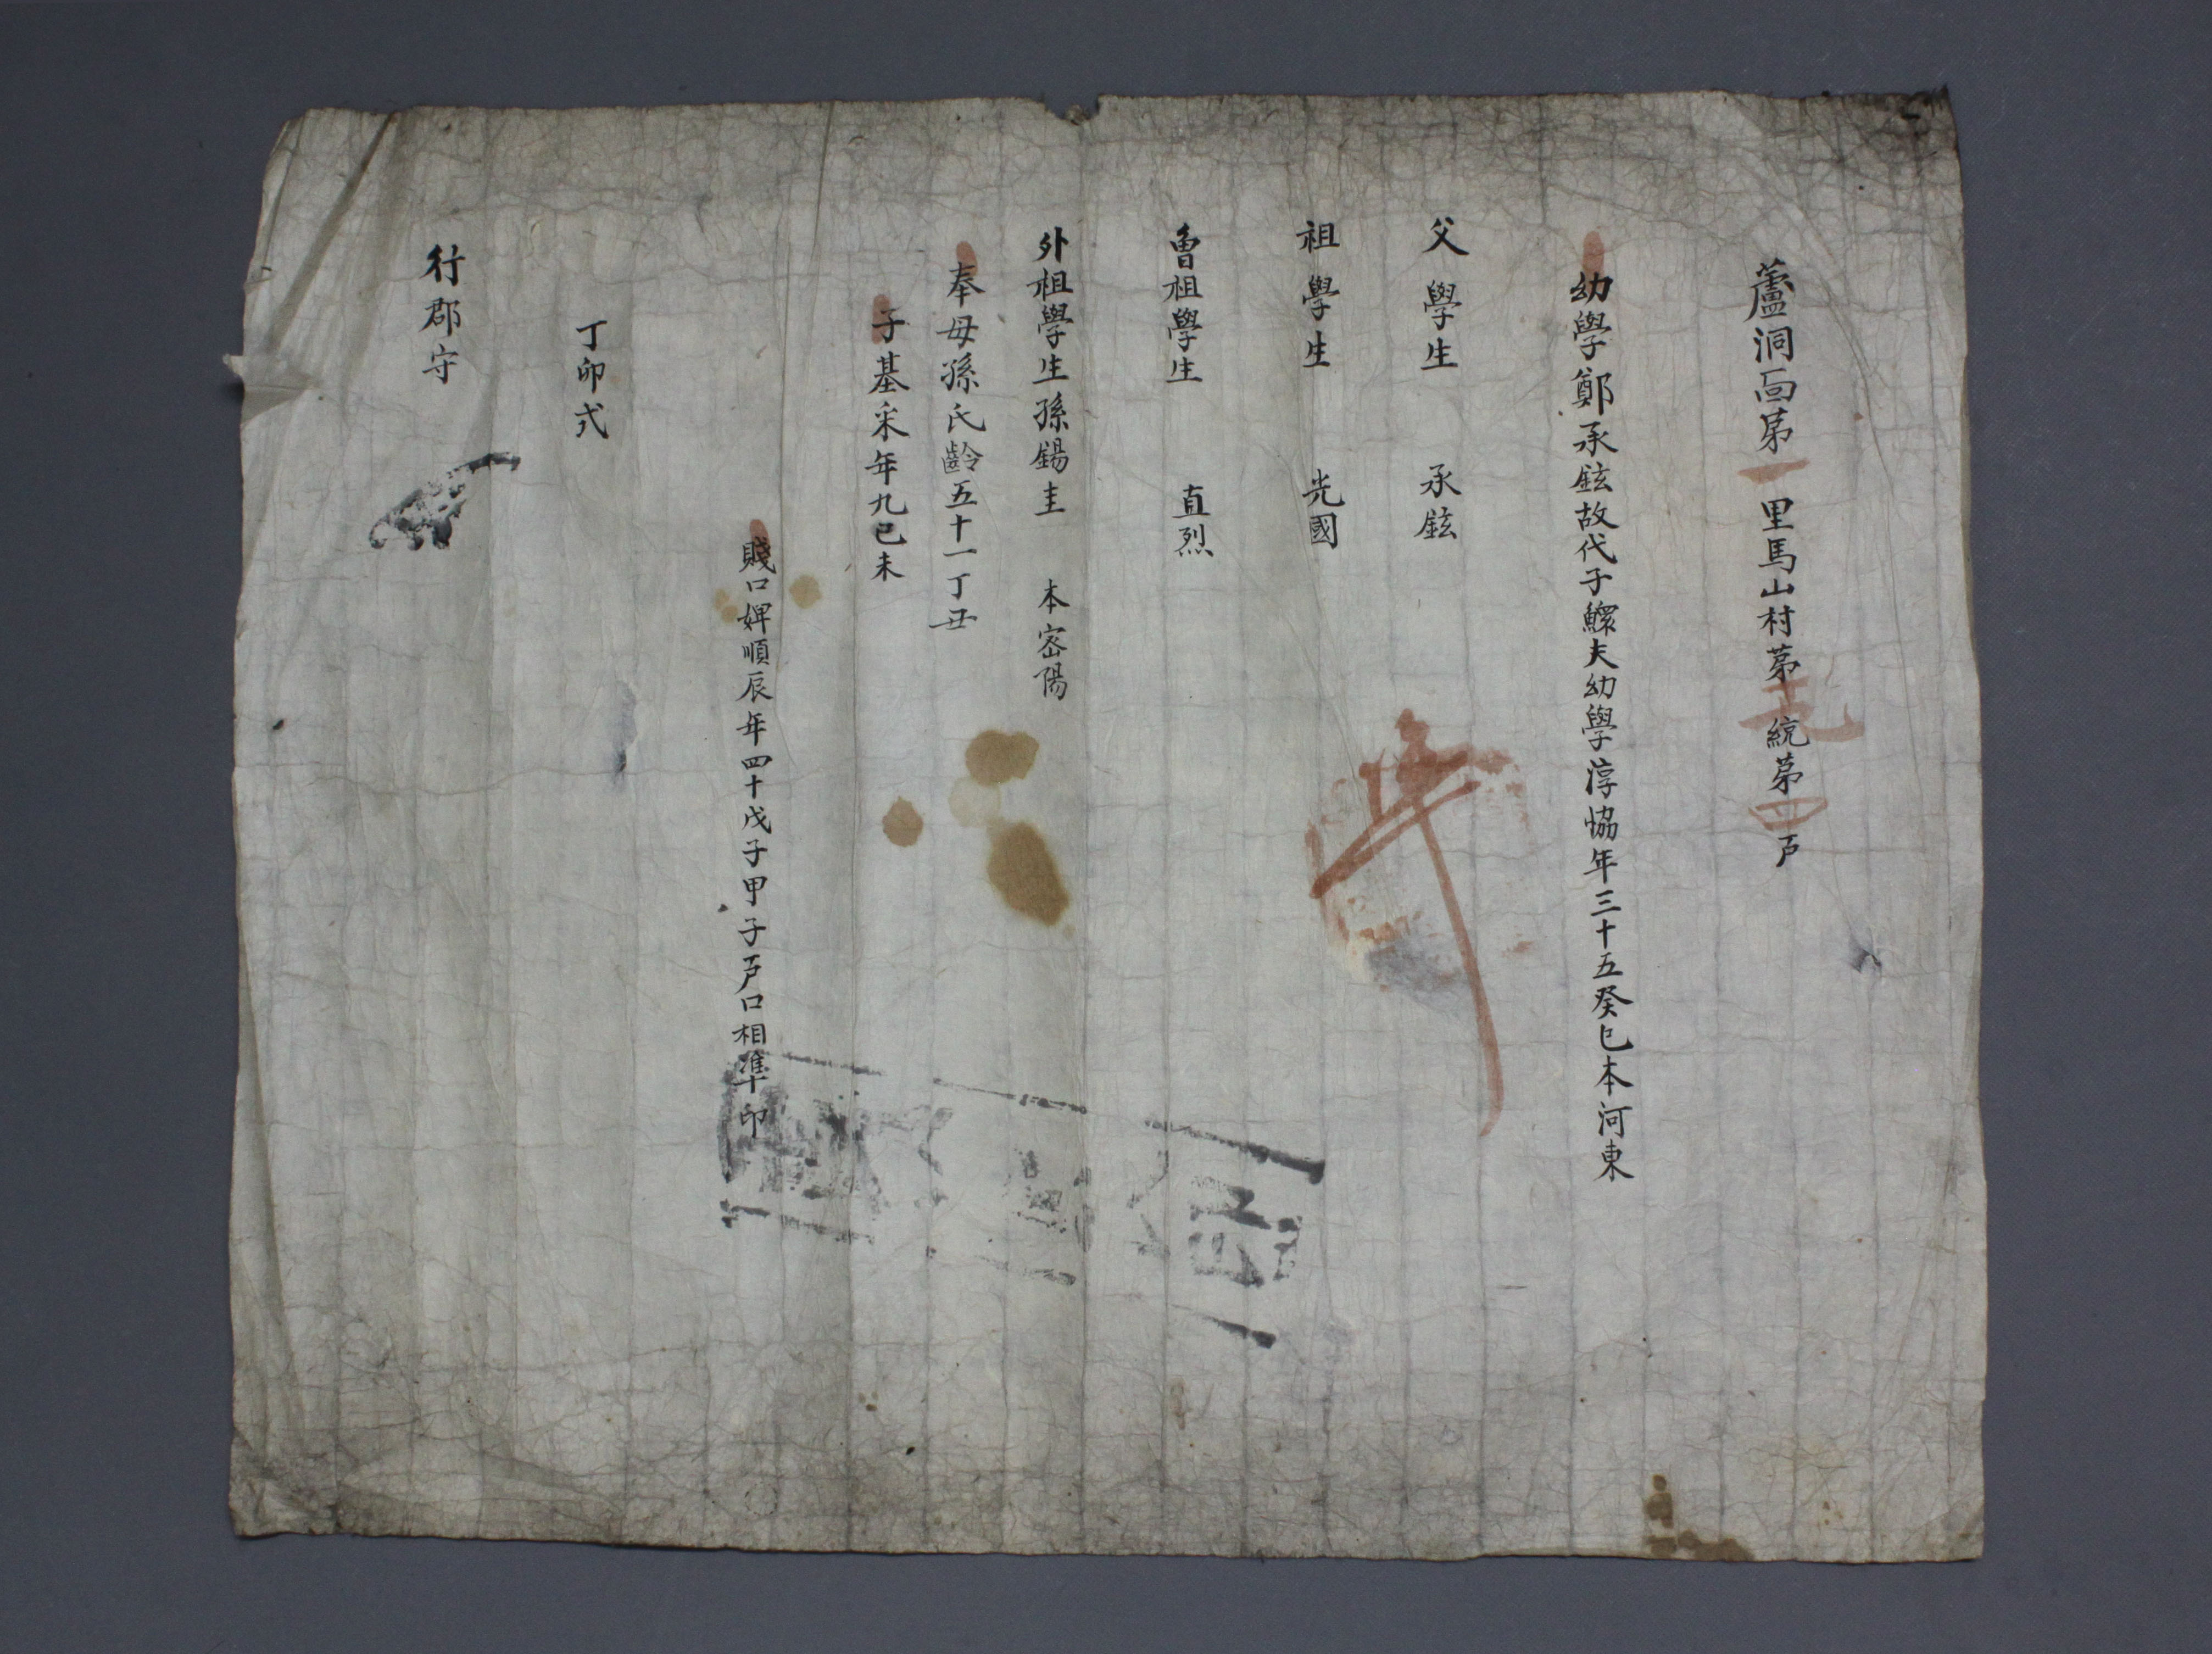 蘆洞面第一里馬山村第十九統第四戸
幼學鄭承鉉故代子鰥夫幼學淳協年三十五癸巳本河東
父學生 承鉉
祖學生 光國
曽祖學生 直烈
外祖學生孫錫圭 本密陽
奉母孫氏齡五十一丁丑
子基采年九己未
賤口婢順辰年四十戊子甲子戸口相準印
丁卯式
行郡守